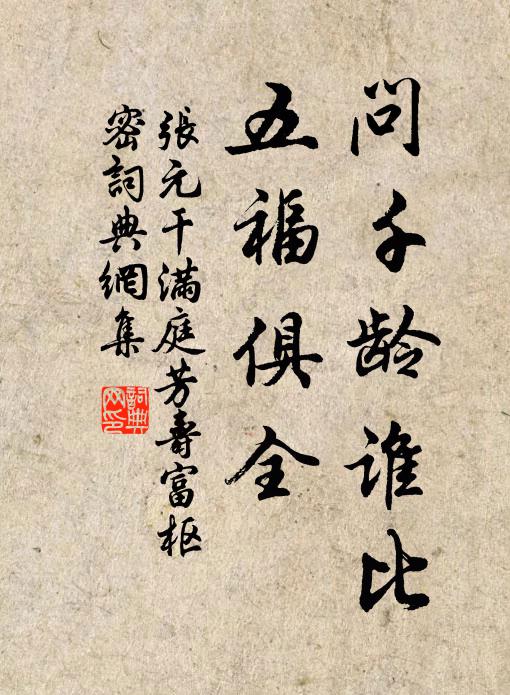 问千龄谁比
五福俱全
張元干满庭芳壽富枢
密詞典網集
詞典网印